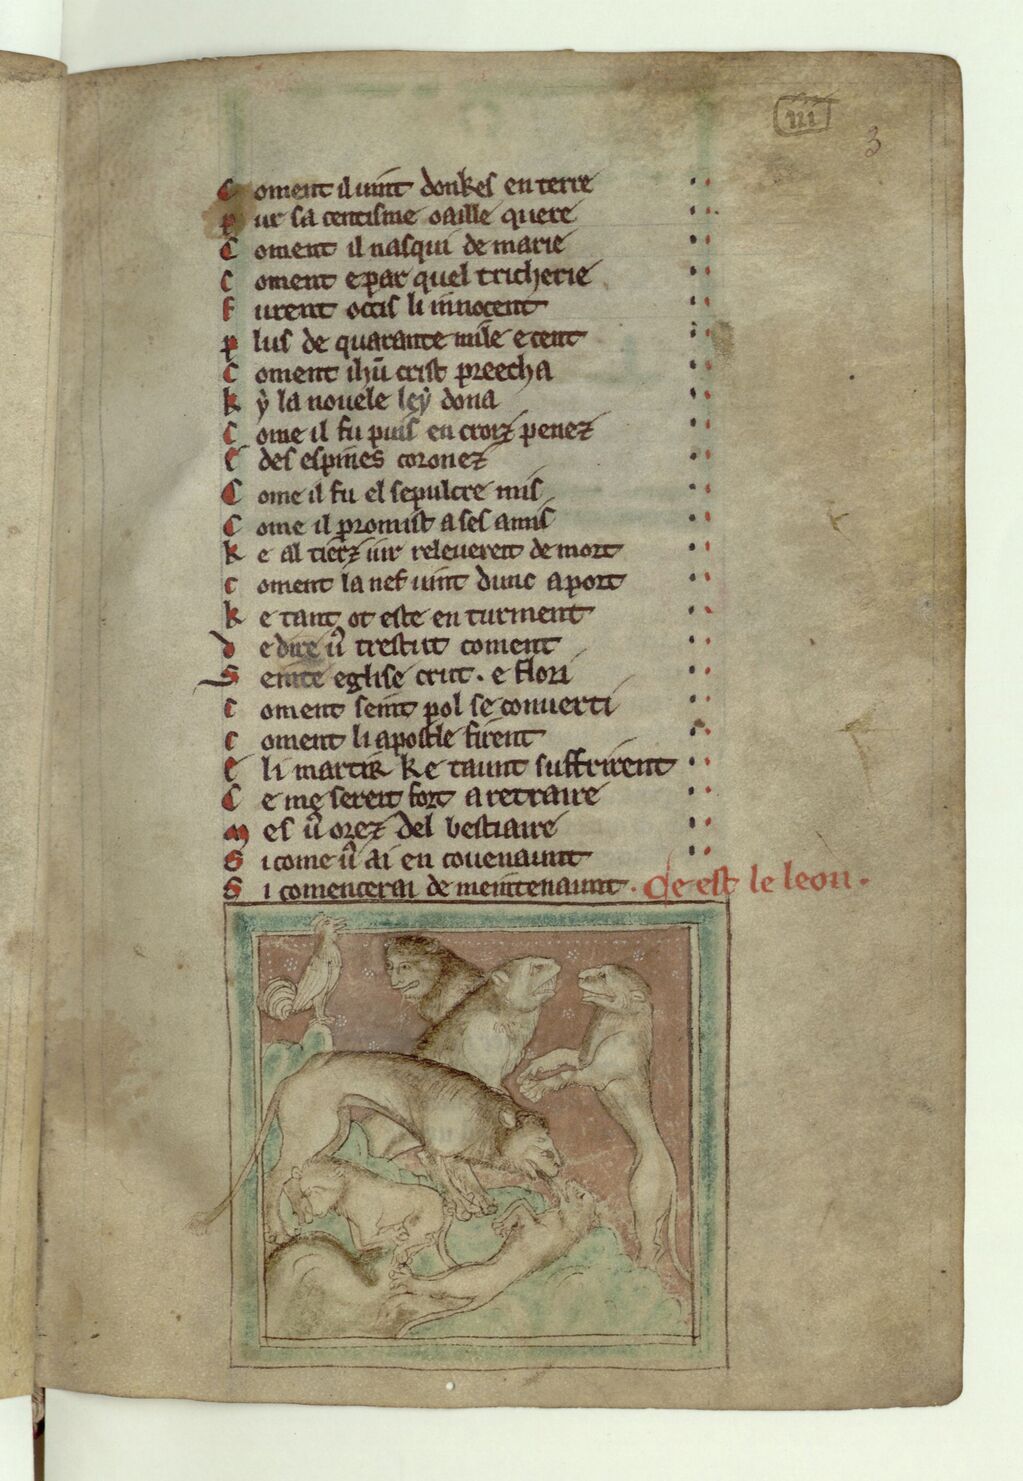 iii
3
Coment il vint donkes en terre
Pur sa centisme oaille quere
Coment il nasqui de marie
Coment e par quel tricherie
Furent occis li innocent
Plus de quarante mile e cent
Coment ihū crist preecha
Ky la novele ley dona
Come il fu puis en croiz penez
E des espines coronez
Come il fu el sepulcre mis
Come il promist a ses amis
Ke al tierz iur releverent de mort
Coment la nef vint dunc a port
Ke tant ot este en turment
De dire ū trestut coment
Seinte eglise crut . e flori
Coment seint pol se converti
Coment li apostle firent
E li martir ke taunt suffrirent
Ce me sereit fort a retraire
Mes ū orez del bestiaire
Si come ū ai en covenaunt
Si comencerai de meintenaunt . Ce est le leon .